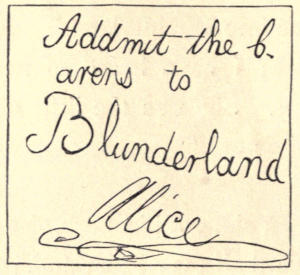 Addmit the b.
arers to
Blunderland
Alice